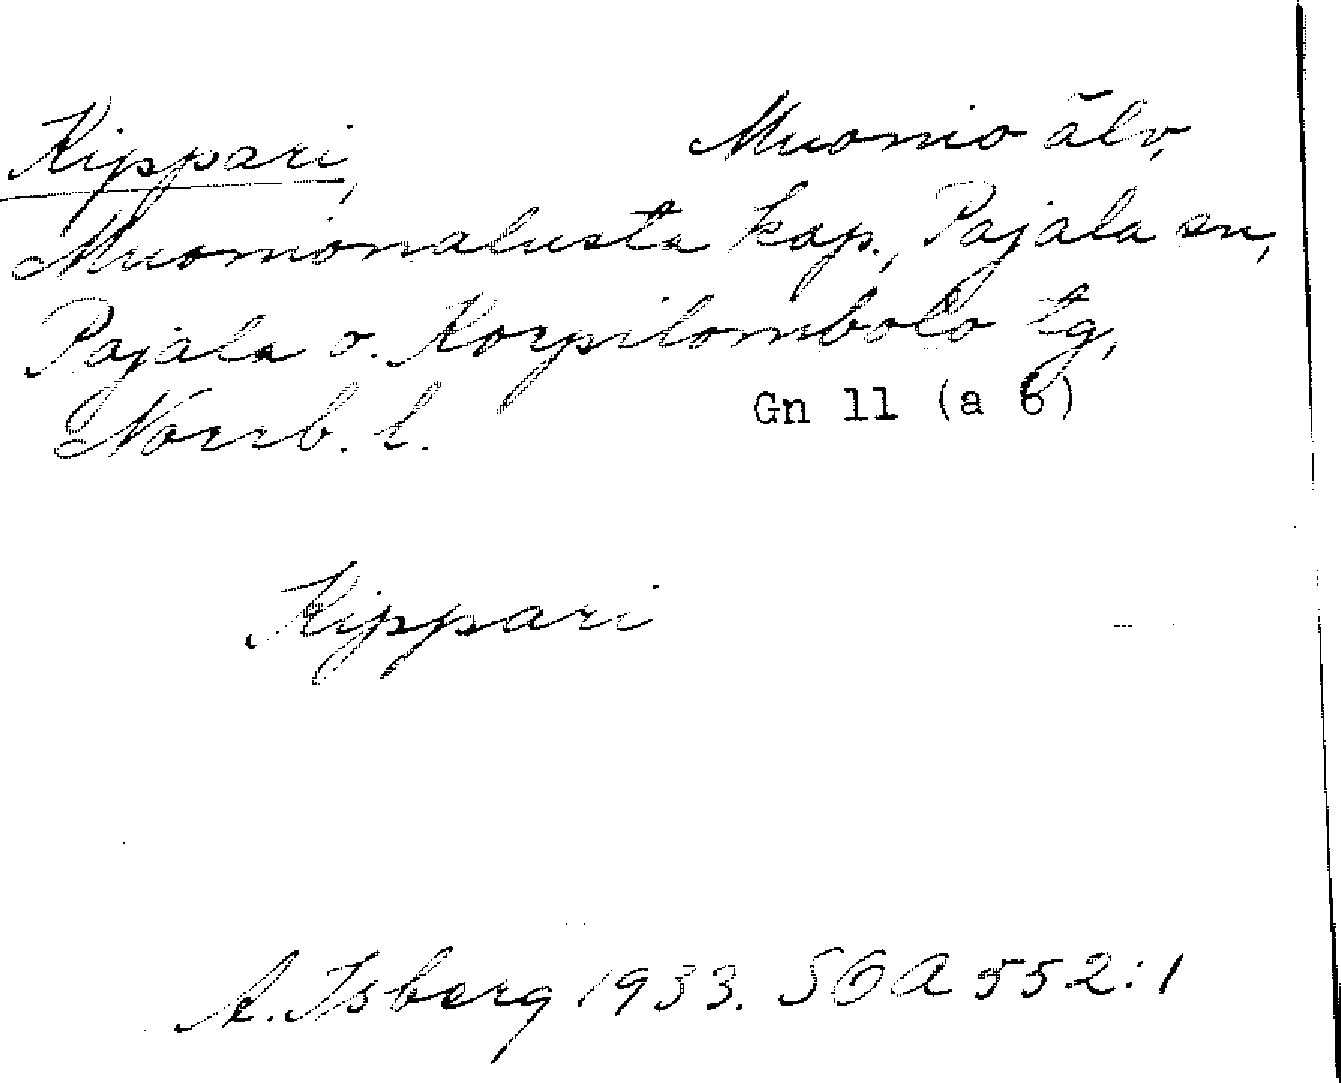 Kippari, Muonio älv,
Muonionalusta kap., Pajala sn,
Pajala o. Korpilombolo tg,
Norrb. l. Gn 11 (a 6)
Kippari
A. Isberg 1933. SOA 552:1